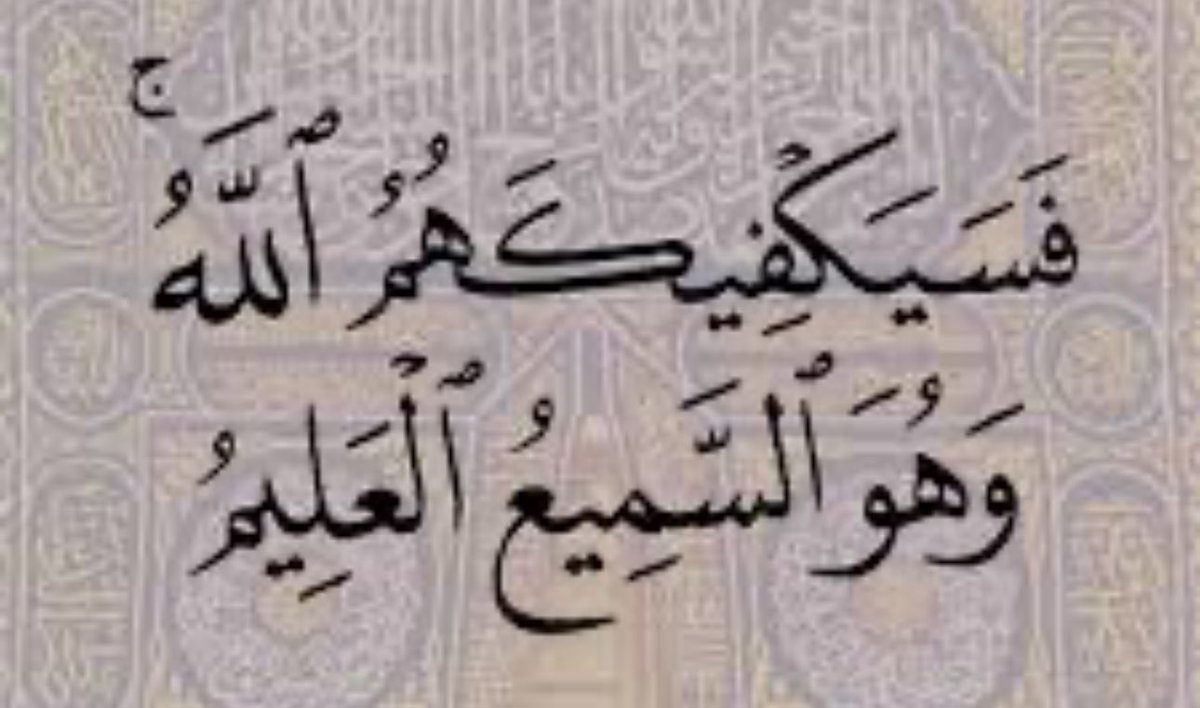 فَسَيَكْفِيكَهُمُ ٱللَّهُ ۚ
وَهُوَ ٱلسَّمِيعُ ٱلْعَلِيمُ